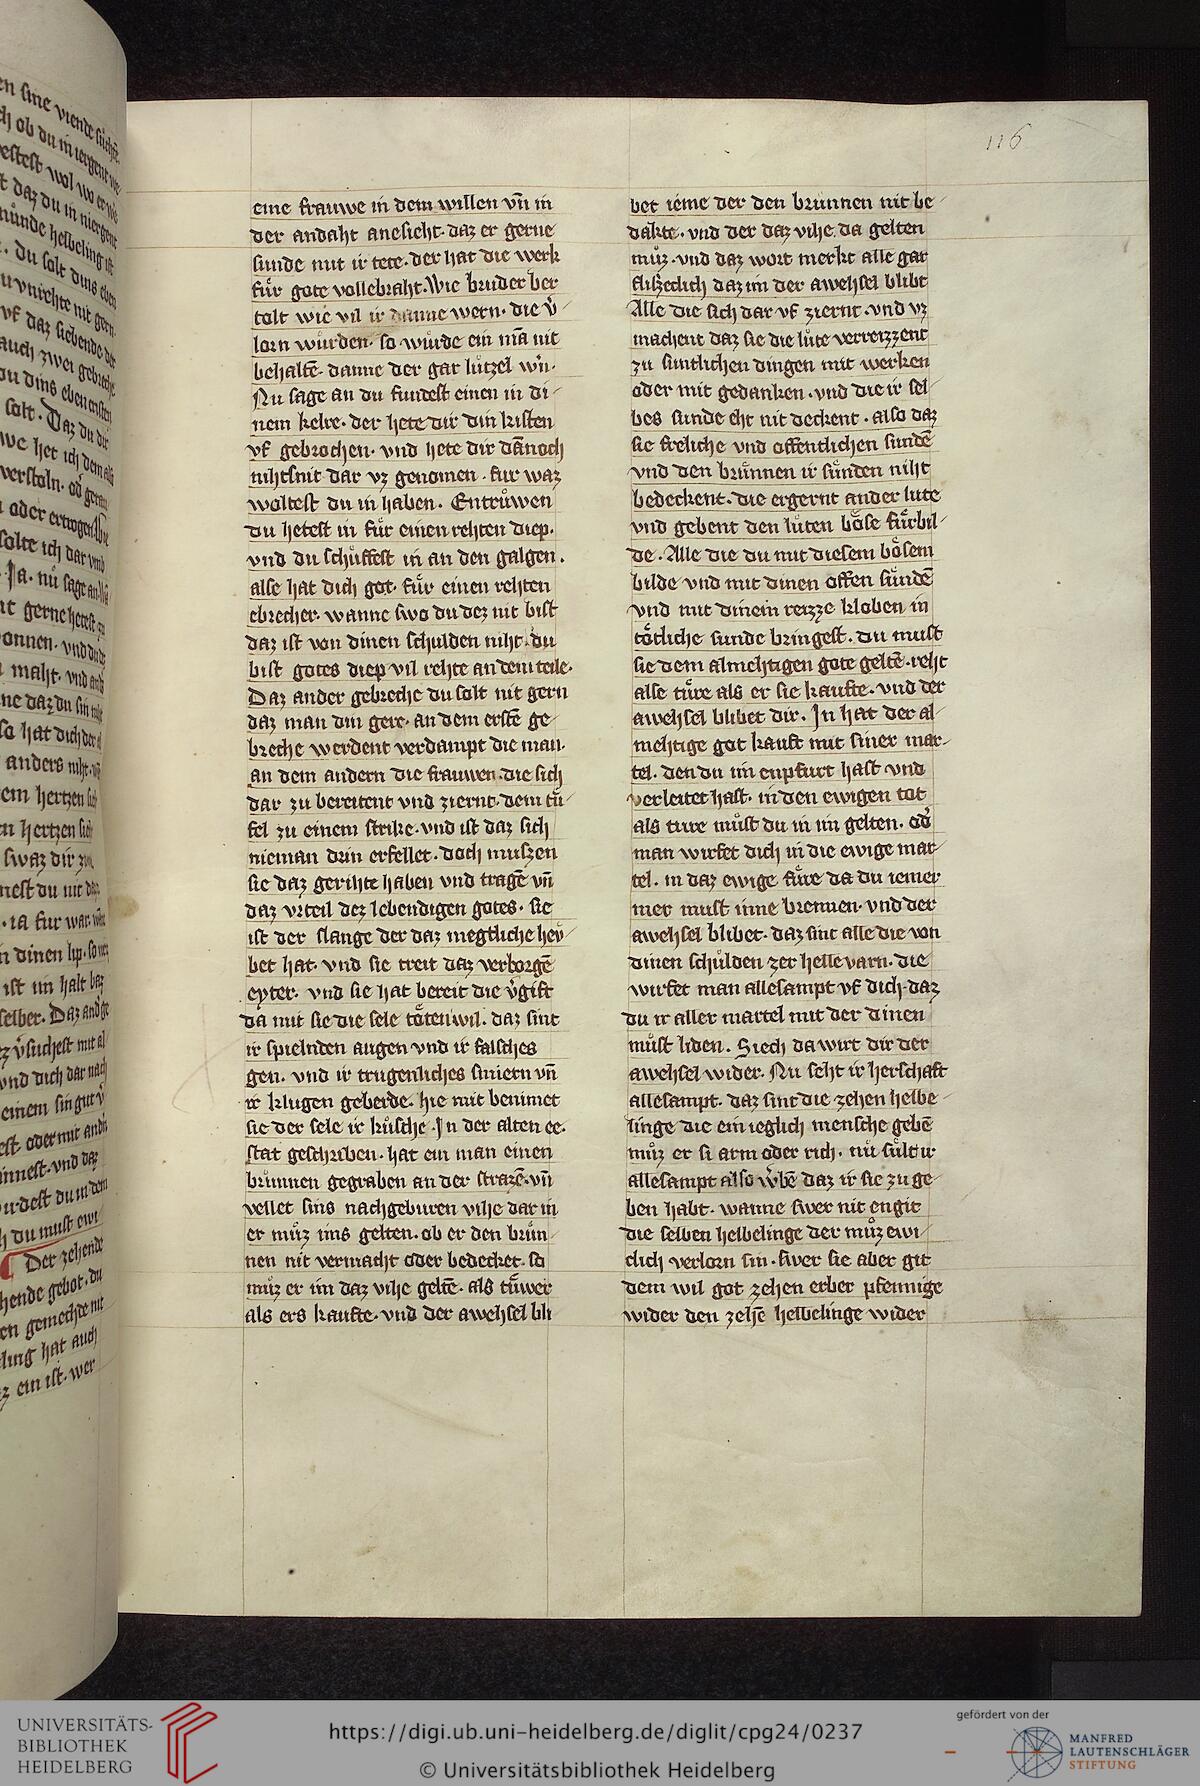 116
eine frauwe in dem willen vn̄ in
der andaht anesicht· daz er gerne
sunde mit ir tete· der hat die werk
fuͤr gote vollebraht· Wie bruder ber
tolt wie vil ir danne wern· die v̓
lorn wuͤrden· so wuͤrde ein mā nit
behaltē· danne der gar luͤtzel wn̄·
Nu sage an du fundest einen in di-
nem kelre· der hete dir din kisten
vf gebrochen· vnd hete dir dānoch
nihtsnit dar vz genomen· fur waz
woltest du in haben. Entruͤwen
du hetest in fuͤr einen rehten diep·
vnd du schuͤffest in an den galgen.
alse hat dich got· fuͤr einen rehten
ebrecher· wanne swo du dez nit bist
daz ist von dinen schulden niht· du
bist gotes diep vil rehte an dem teile·
Daz ander gebreche du solt nit gern
daz man din gere· an dem erstē ge-
breche werdent verdampt die man·
an dem andern die frauwen· die sich
dar zu bereitent vnd ziernt· dem tuͤ-
fel zu einem strike· vnd ist daz sich
nieman drin erfellet· doch muszen
sie daz gerihte haben vnd tragē vn̄
daz vrteil dez lebendigen gotes· sie
ist der slange der daz megtliche hey-
bet hat· vnd sie treit daz verborgē
eyter· vnd sie hat bereit die v̓gift
da mit sie die sele toͤten wil· daz sint
ir spielnden augen vnd ir falsches
gen· vnd ir trugenliches smiern vn̄
ir klugen geberde· hie mit benimet
sie der sele ir kuͤsche· In der alten ee·
stat geschriben· hat ein man einen
bruͤnnen gegraben an der strazē· vn̄
vellet sins nachgeburen vihe dar in
er muͤz ims gelten· ob er den bruͤn-
nen nit vermacht oder bedecket· so
muͤz er im daz vihe geltē· als tuͤwer
als ers kaufte· vnd der awehsel bli
bet ieme der den bruͤnnen nit be-
dakte· vnd der daz vihe da gelten
muͤz· vnd daz wort merkt alle gar
fliszeclich daz im der awehsel blibt
Alle die sich dar vf ziernt· vnd vz
machent daz sie die luͤte verreizzent
zu suntlichen dingen mit werken
oder mit gedanken· vnd die ir sel-
bes sunde eht nit deckent· also daz
sie freliche vnd offentlichen sundē
vnd den bruͤnnen ir suͤnden niht
bedeckent· die ergernt ander lute
vnd gebent den luͤten boͤse fuͤrbil-
de· Alle die du mit diesem boͤsem
bilde vnd mit dinen offen suͤndē
vnd mit dinem reizze kloben in
toͤtliche sunde bringest· du must
sie dem almehtigen gote geltē· reht
alse tuͤre als er sie kaufte· vnd der
awehsel blibet dir· In hat der al-
mehtige got kauft mit siner mar-
tel· den du im enpfurt hast vnd
verleitet hast· in den ewigen tot
als ture muͤst du in im gelten· od̓
man wirfet dich in die ewige mar-
tel· in daz ewige fuͤre da du iemer
mer must inne brennen· vnd der
awehsel blibet· daz sint alle die von
dinen schulden zer helle varn· die
wirfet man allesampt vf dich· daz
du ir aller martel mit der dinen
muͤst liden· Siech da wirt dir der
awehsel wider· Nu seht ir herschaft
allesampt· daz sint die zehen helbe-
linge die ein ieglich mensche gebē
muͤz er si arm oder rich· nu suͤlt ir
allesampt also w̓bē daz ir sie zu ge-
ben habt· wanne swer nit engit
die selben helbelinge der muͤz ewi-
clich verlorn sin· swer sie aber git
dem wil got zehen erber pfennige
wider den zehē helbelinge wider
UNIVERSITÄTS-
BIBLIOTHEK
HEIDELBERG
https://digi.ub.uni-heidelberg.de/diglit/cpg24/0237
© Universitätsbibliothek Heidelberg
gefördert von der
MANFRED
LAUTENSCHLÄGER
STIFTUNG